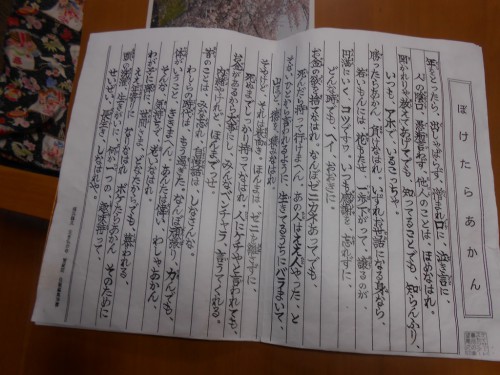 ぼけたらあかん
年をとったら出しゃばらず、憎まれ口に、泣き言に、
人の陰口、愚痴言わず、他人のことは、ほめなはれ。
聞かれりゃ教えてあげても、知ってることでも、知らんふり、
いつもアホで、いるこっちゃ。
勝ったらあかん、負けなはれ、いずれお世話になる身なら、
若いもんには、花もたせ、一歩下がって、譲るのが
円満にいく、コツですわ、いつも感謝を、忘れずに、
どんな時でも、ヘイ、おおきに。
お金の欲を捨てなはれ、なんぼゼニカネあってでも、
死んだら持って行けまへん、あの人はええ人やった、と
そないひとから言われるように、生きてるうちにバラまいて、
山ほど、徳を、積みなはれ。
そやけど、それは表向き。ほんまは、ゼニを離さずに、
死ぬまでしっかり、持ってなはれ、人にケチやと言われても、
お金があるから大事にし、みんなベンチャラ、言うてくれる。
内緒やけれど、ほんまでっせ。
昔のことは、みな忘れ、自慢話は、しなさんな、
わしらの時代は、もう過ぎた、なんぼ頑張り、力んでも、
体がいうこと、ききまへん、あんたは偉い、わしゃあかん、
そんな気持で、おりなはれ。
わが子に孫に、世間さま、どなたからでも、慕われる、
ええ年寄りに、なりなはれ、ボケたらあかん、そのために
頭の洗濯、生きがいに、何か一つの、趣味持って、
せいぜい、長生き、しなはれや。